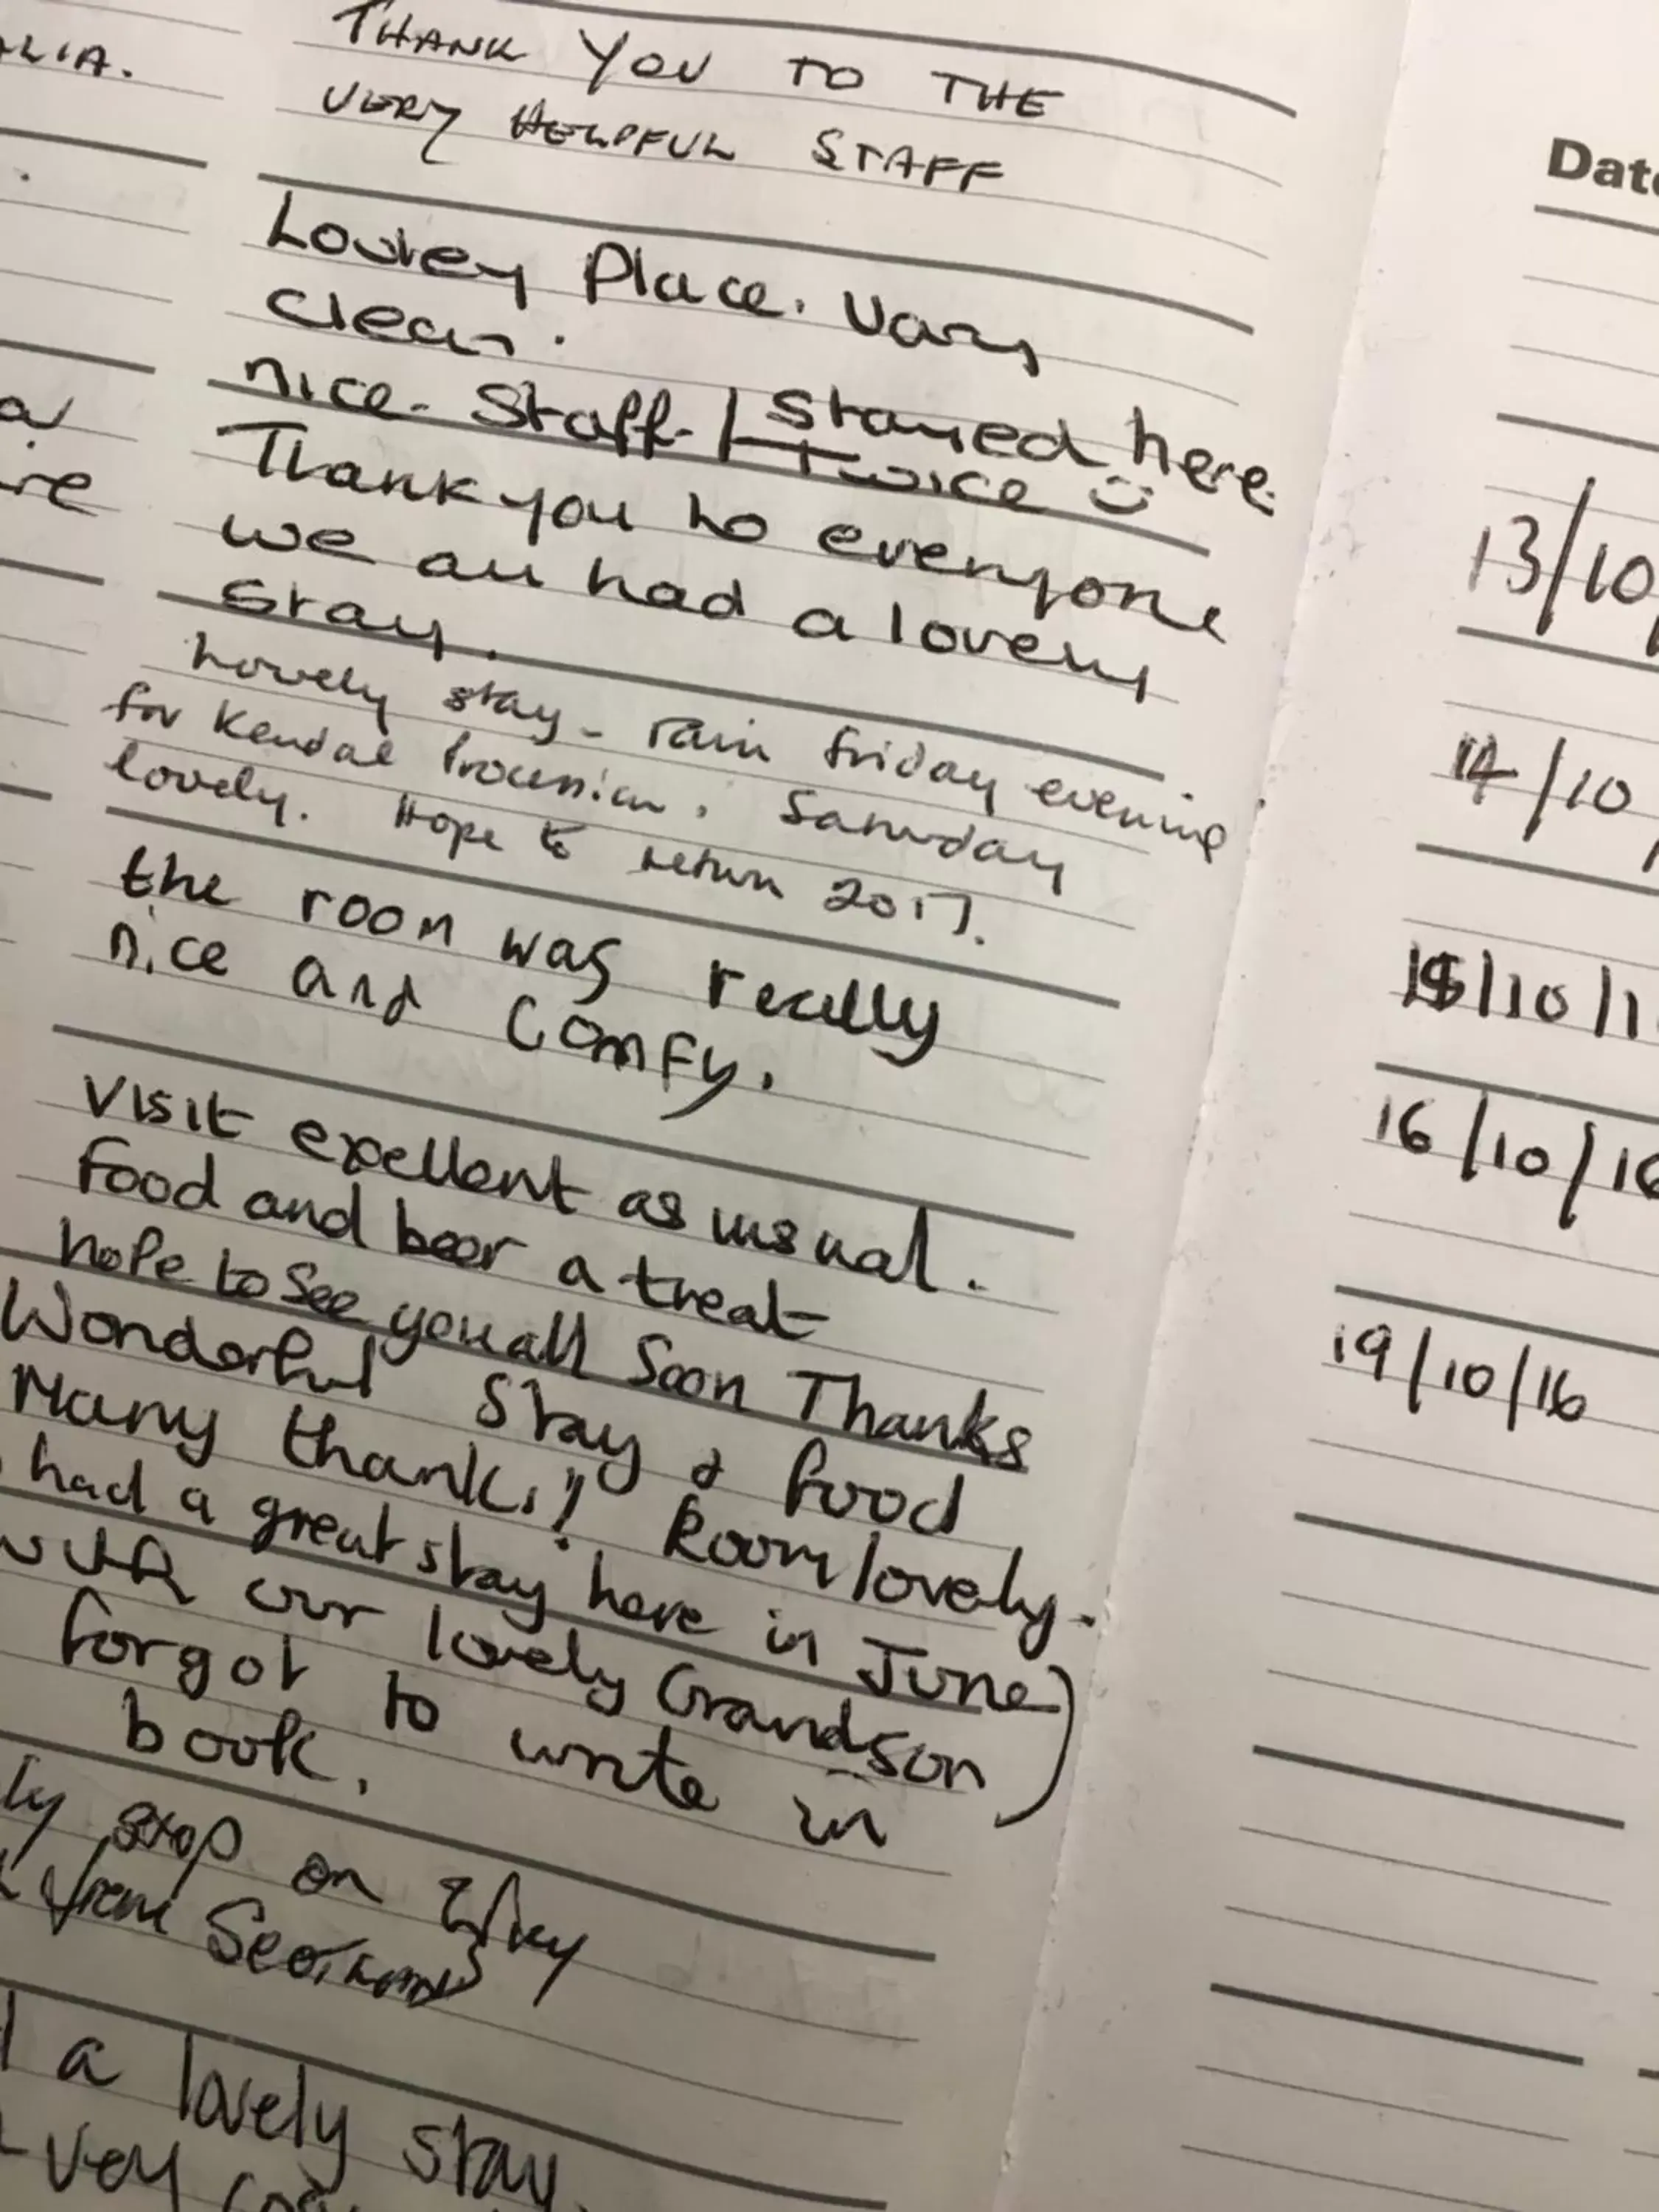 ALIA.
THANK YOU TO THE
VERY HELPFUL STAFF
Lovley Place. Vary
clean.
nice. Staff. | Stayed here.
Twice
Thank you to everyone
we all had a lovely
stay.
Lovely stay - rain friday evening
for Kendal Procession. Saturday
lovely. Hope to return 2017.
the room was really
nice and comfy.
Visit expellent as usual.
Food and beer a treat
hope to see you all Soon Thanks
Wonderful Stay & food
Many thanks! Room lovely.
had a great stay here in June)
with our lovely Grandson
forgot to write in
book.
ly stop on
from
a lovely stay.
very
Date
13/10
14/10
15/10/1
16/10/16
19/10/16